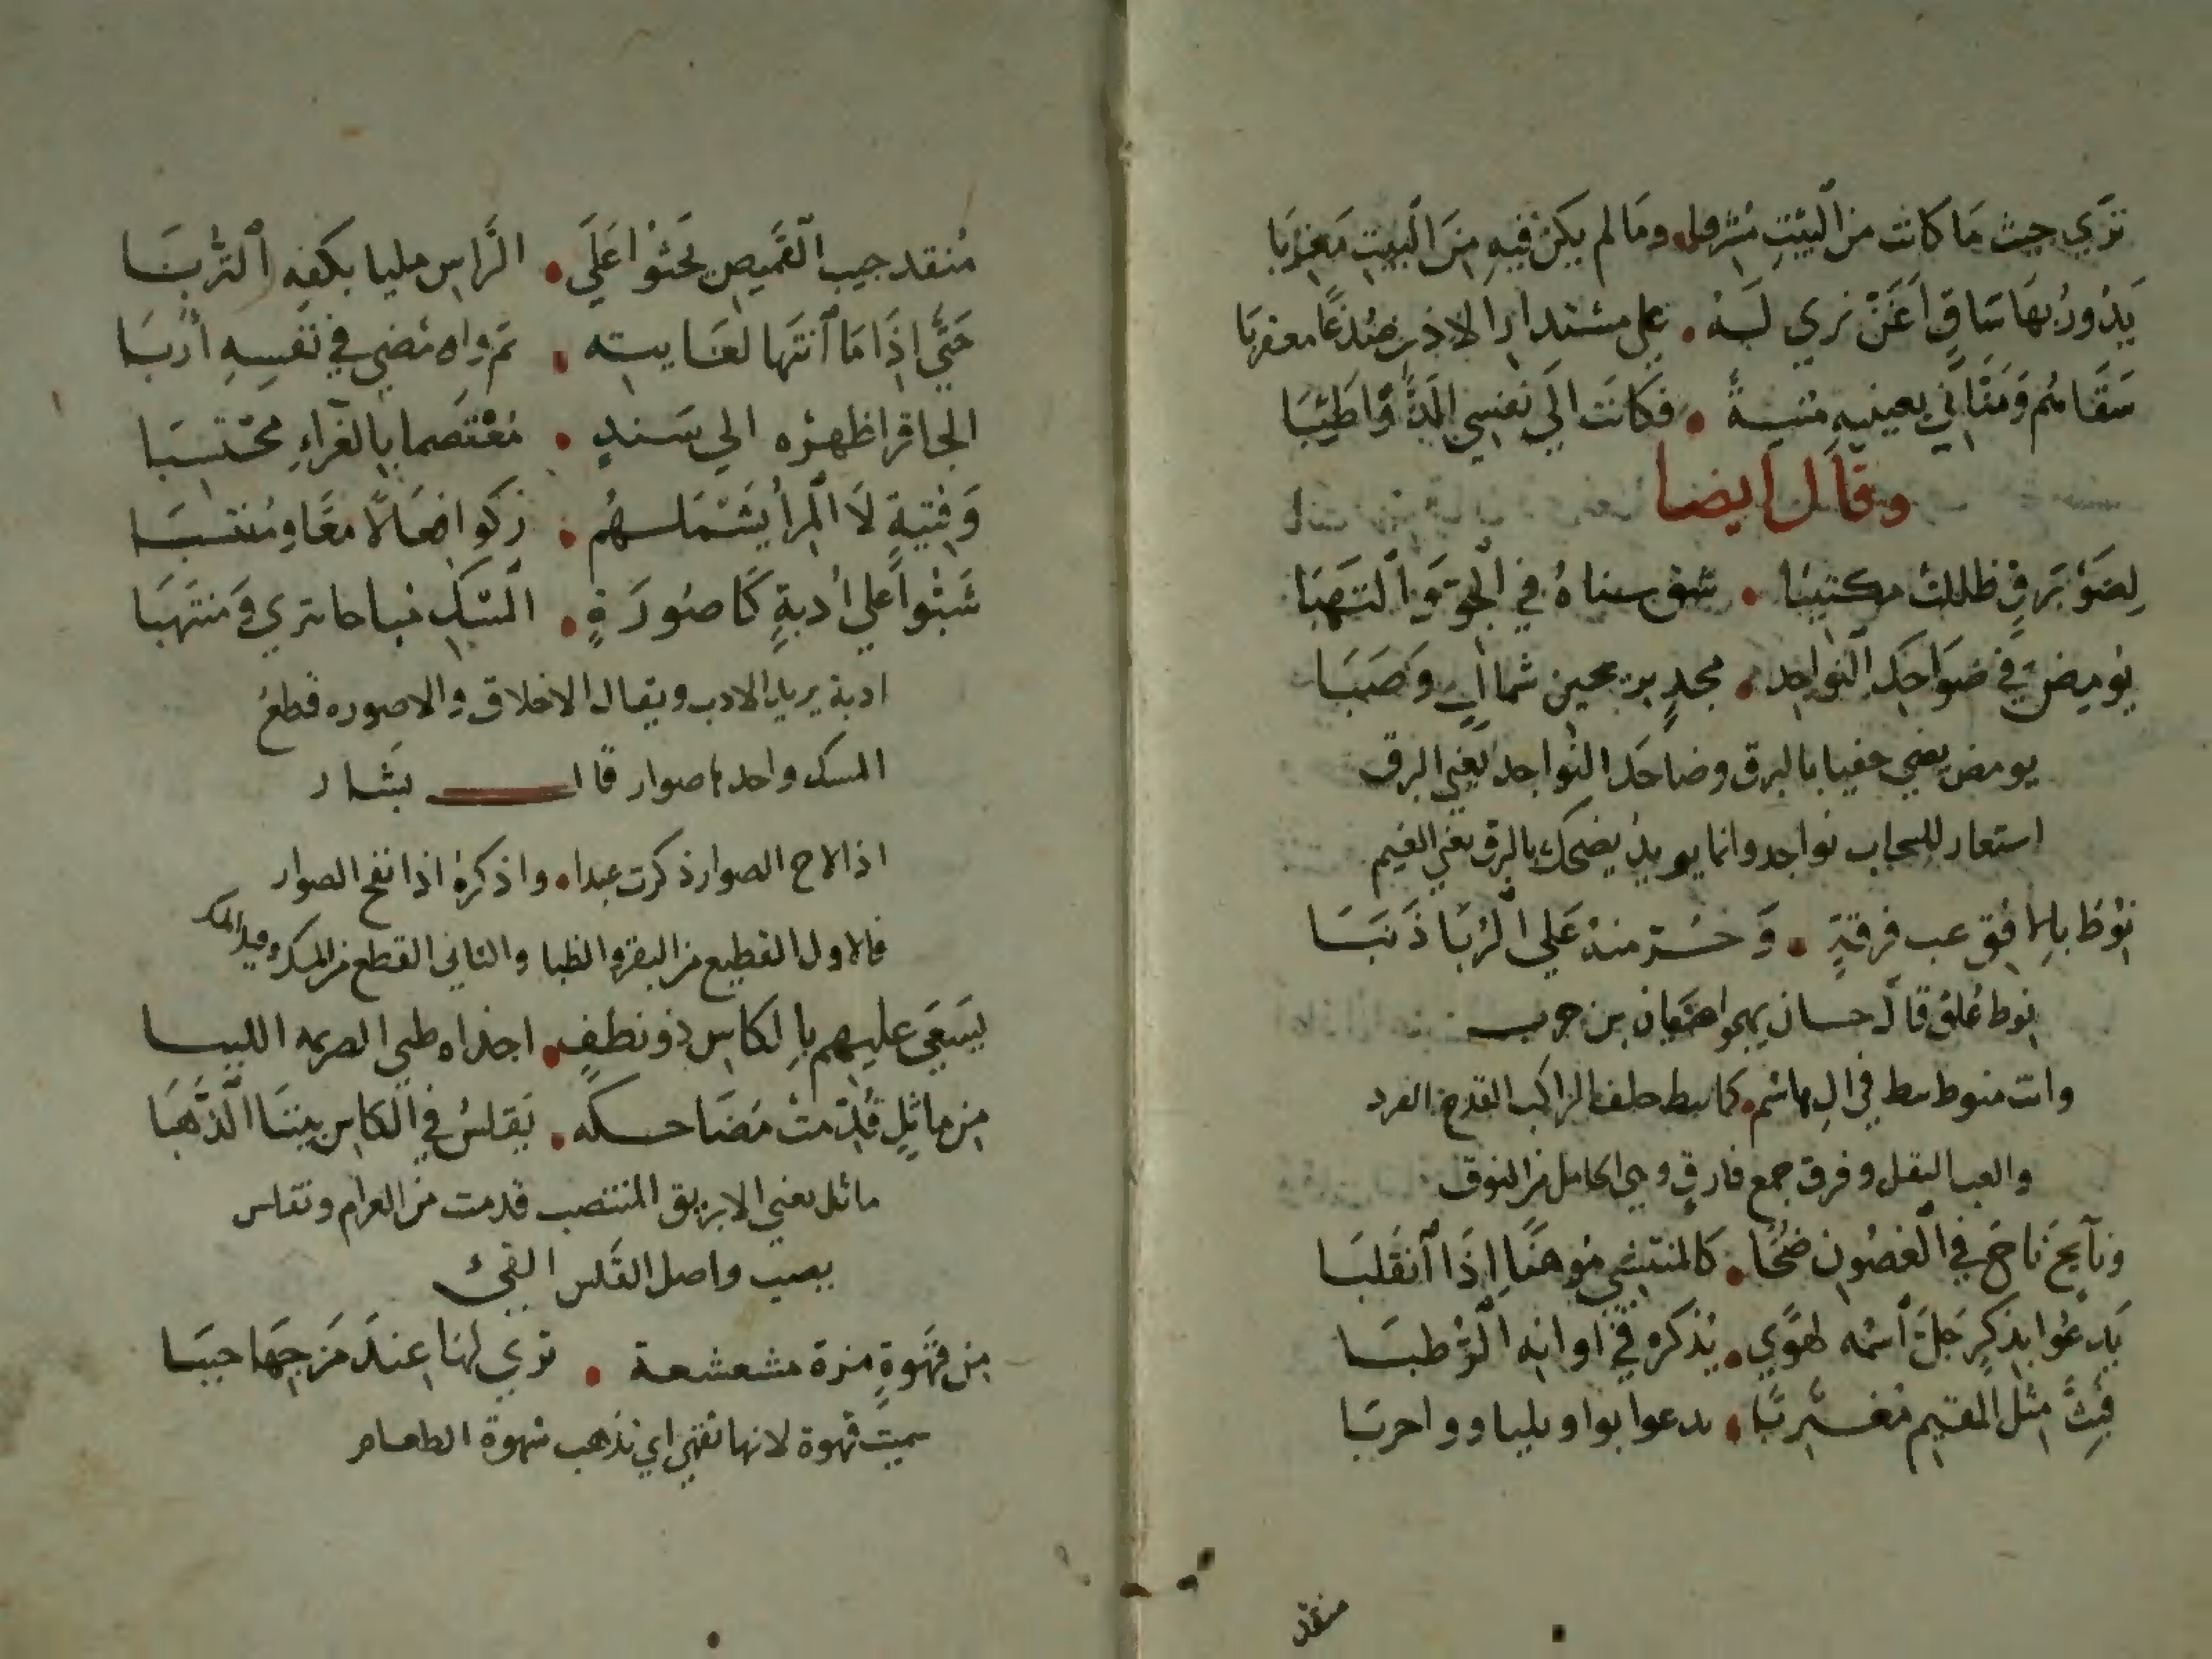 ترى حيث ما كانت من البيت مشرقا وما لم يكن فيه من البيت مغربا
يدور بها ساق اغن ترى له على مستدار الاذن صدغا معقربا
سقاهم ومناني بعينيه منية فكانت الى نفسي الذ واطيبا
وقال ايضا
لضوء برق ظللت مكتئبا شق سناه في الجو والتهبا
يومض في ضواحك النواجد
يومض يعني خفيا بالبرق وضاحك النواجد يعني البرق
استعار للسحاب نواجد وانما يريد يضحك بالبرق يعني الغيم
نوط بالافق عب فرقة على الربا ذنبا
نوط علق قال حسان يهجو
وانت منوط نيط في ال هاشم كما نيط خلف الراكب القدح الفرد
والعبا الثقل وفرق جمع فارق وهي الحامل من النوق
ونايح ناح في الغصون ضحا كالمنتشي موهنا اذا انقلبا
يدعوا بذكر جل اسمه لهوى يذكره في اوانه الرطبا
فبت مثل المقيم مغتربا يدعوا بواويليا وواحربا
منقد
منقد جيب القميص يحثوا على الراس مليا بكفه التربا
حتى اذا ما انتها لغايته ثم واه تضى في نفسه اربا
الجا قرا ظهره الى سند معتصما بالغراء محتسبا
وفتية لا المرا يشملهم زكوا فعالا معا ومنتسبا
شبوا على ادبة كاصورة المسك نباحا ترى ومنتهبا
ادبة يريد الادب ويقال الاخلاق والاصوره قطع
المسك واحدها صوار قال بشار
اذا لاح الصوار ذكرت عبدا واذكره اذا نفح الصوار
فالاول القطيع من البقر والظبا والثاني القطع من المسك
يسعى عليهم بالكاس ذو نطف ظبي الصريمه اللببا
من ماثل قدمت مضاحكه يقلس في الكاس بيننا الذهبا
ماثل يعني الابريق المنتصب قدمت من الفدام وتقلس
يصب واصل القلس القيء
من قهوة مزة مشعشعة ترى لها عند مزجها حببا
سميت قهوة لانها تقهي اي تذهب شهوة الطعام